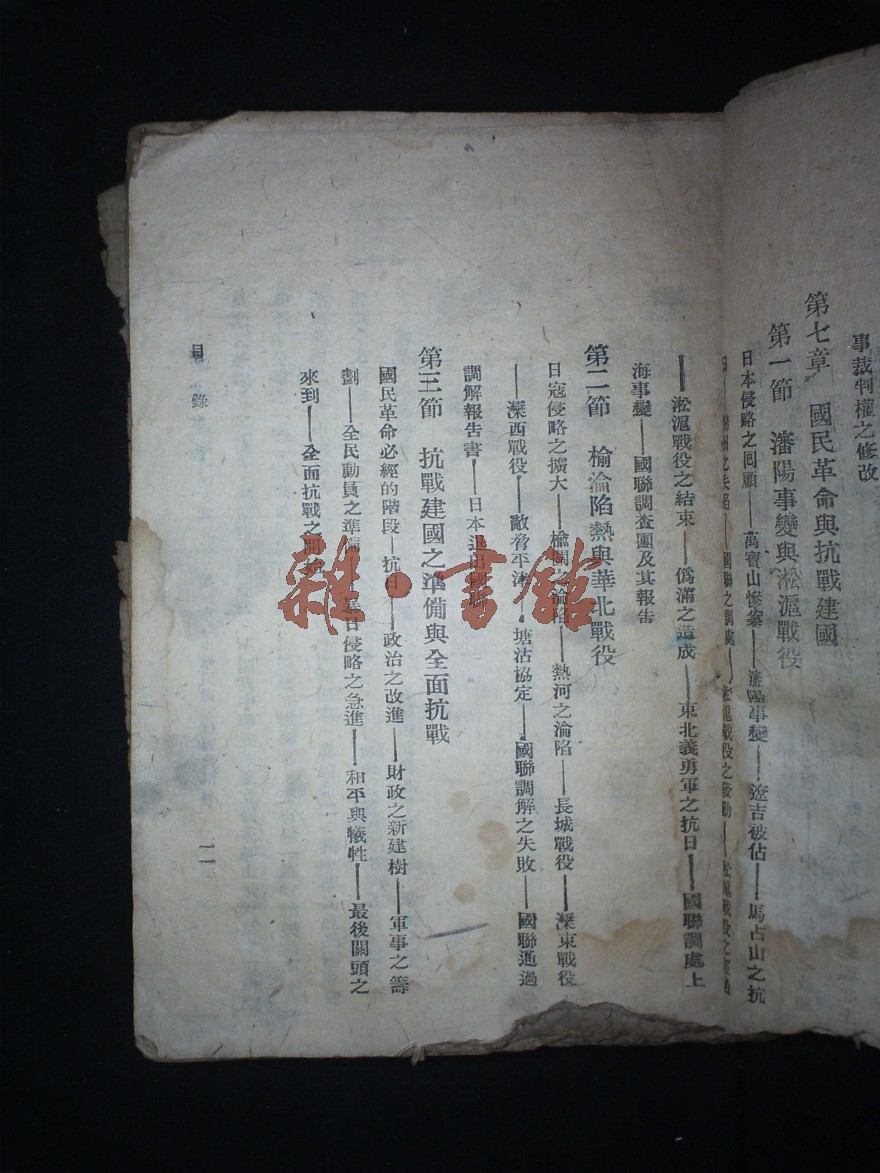 事裁判權之修改
第七章 國民革命與抗戰建國
第一節 瀋陽事變與淞滬戰役
日本侵略之回顧——萬寶山慘案——瀋陽事變——遼吉被佔——馬占山之抗
日——錦州之失陷——國聯之調處——淞滬戰役之發動——淞滬戰役之
——淞滬戰役之結束——僞滿之造成——東北義勇軍之抗日——國聯調處上
海事變——國聯調查團及其報告
第二節 榆淪陷熱與華北戰役
日寇侵略之擴大——榆關之淪陷——熱河之淪陷——長城戰役——灤東戰役
——灤西戰役——敵脅平津——塘沽協定——國聯調解之失敗——國聯通過
調解報告書——日本退出國聯
第三節 抗戰建國之準備與全面抗戰
國民革命必經的階段——抗日——政治之改進——財政之新建樹——軍事之籌
劃——全民動員之準備——暴日侵略之急進——和平與犧牲——最後關頭之
來到——全面抗戰之開始
目錄
一一
雜·書館